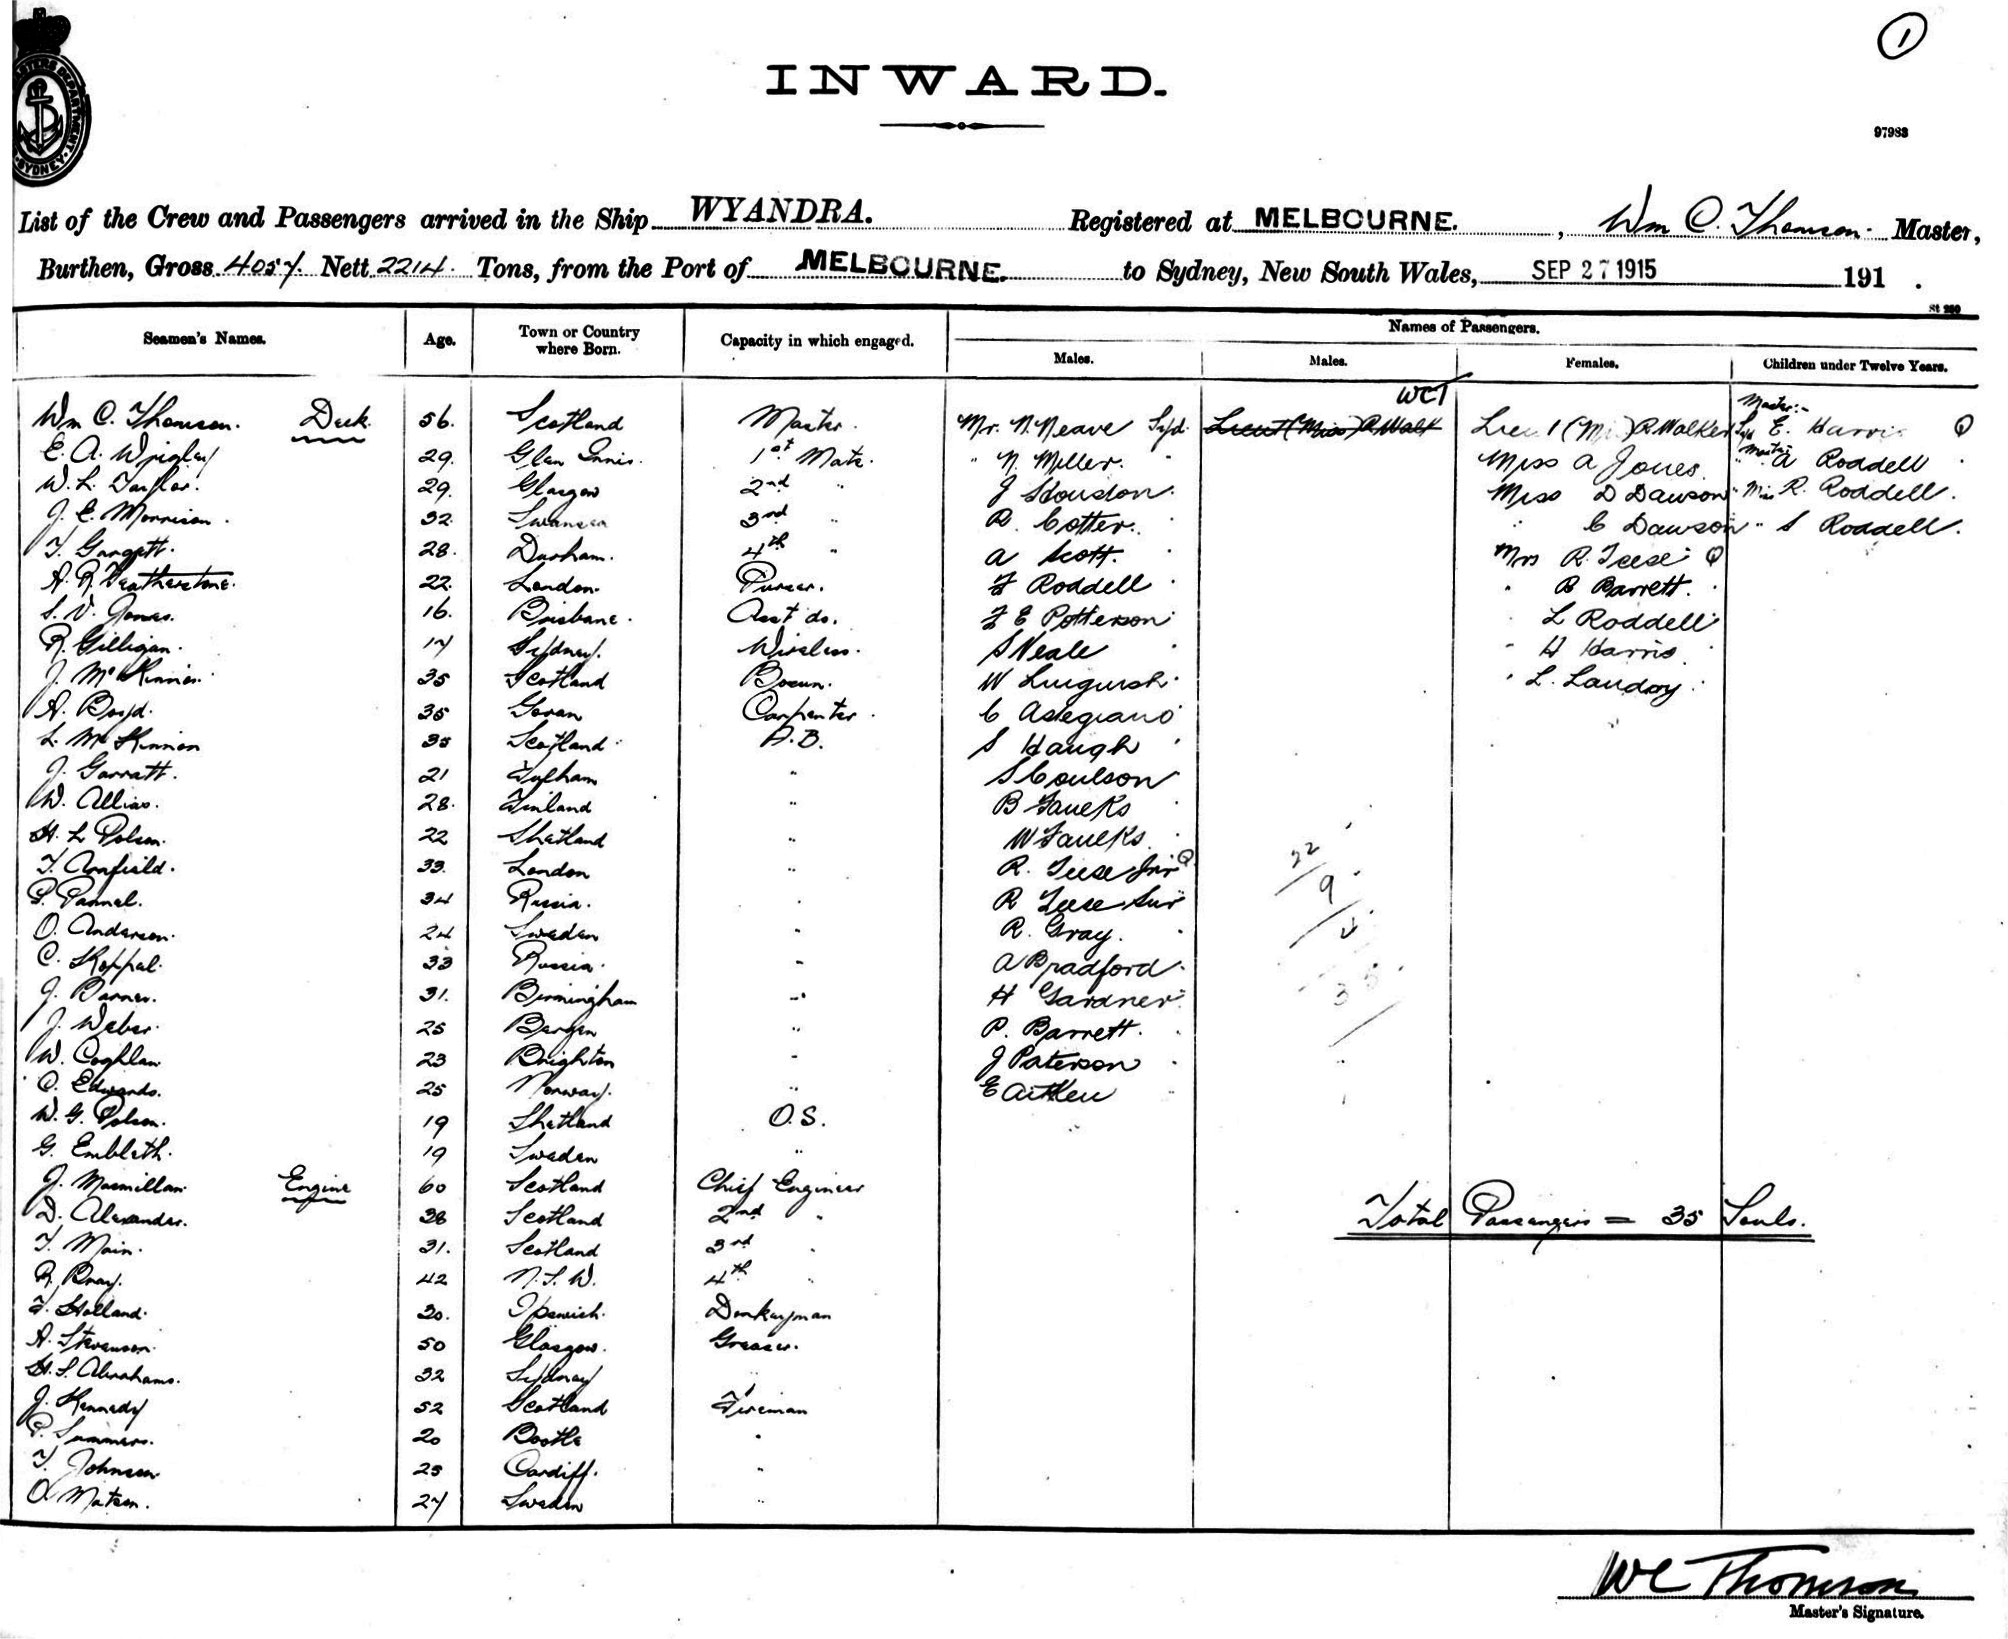 1
INWARD.
97983
List of the Crew and Passengers arrived in the Ship WYANDRA. Registered at MELBOURNE. , Wm C. Thomson. Master,
Burthen, Gross 4057. Nett 2214. Tons, from the Port of MELBOURNE. to Sydney, New South Wales, SEP 27 1915 191 .
St 230
Seamen's Names. Age. Town or Country where Born. Capacity in which engaged. Names of Passengers.
Males. Males. Females. Children under Twelve Years.
WCT
Master:-
Wm C. Thomson. Deck 56. Scotland Master. Mr. N. Neave Syd. Lieut (Miss) R Walk Lieut (Mi ) R Walker Syd E. Harris Q
E. A. Wrigley 29. Glen Innis. 1st Mate. " N. Miller. " Miss A Jones. " Master A Roddell
W. L. Taylor. 29. Glasgow 2nd " J Houston. Miss D Dawson " Miss R. Roddell.
J. E. Morrison. 32. Swansea 3rd " R. Cotter. " C Dawson " S Roddell.
T. Gargett. 28. Durham. 4th " A Scott. Mrs R. Teese Q
A. R. Featherstone. 22. London. Purser. F Roddell " B Barrett.
S. V. Jones. 16. Brisbane. Asst do. F E Potterson L Roddell
R. Gilligan. 17 Sydney. Wireless. S Neale " H Harris
J. McKinnon 35 Scotland Bosun. W " L. Landry
A. Boyd. 35 Govan Carpenter. C Astegiano
L. McKinnon 35 Scotland A.B. S Haugh
J. Garratt. 21 Fulham " S Coulson
W. Allias. 28. Finland " B Faulks
H. L Polson. 22 Shetland " W Faulks
T. Canfield. 33. London " R. Teese Jnr Q
P. Pannel. 34 Russia. " R Teese Snr
O. Anderson. 24 Sweden " R. Gray.
C. Koppal. 33 Russia. " A Bradford.
J. Barnes. 31. Birmingham " H Gardner
J. Weber. 25 Bergen " P. Barrett.
W. Coghlan 23 Brighton " J Paterson
O. Edwards. 25 Norway. " E Aitken
W. G. Polson. 19 Shetland O.S.
G. Embleth. 19 Sweden "
J. Macmillan Engine 60 Scotland Chief Engineer
D. Alexander. 38 Scotland 2nd "
T. Main. 31. Scotland 3rd "
R. Bray. 42 N.S.W. 4th "
F. Holland. 30. Ipswich. Donkeyman
A. Stevenson. 50 Glasgow. Greaser.
H. S. Abrahams. 32 Sydney "
J. Kennedy 52 Scotland Fireman
P. Summers. 20 Bootle "
T. Johnson 25 Cardiff. "
O Matson. 27 Sweden "
22
9
4
35
Total Passengers = 35 Souls.
WC Thomson
Master's Signature.